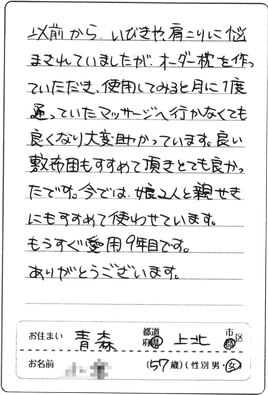 以前から、いびきや、肩こりに悩
まされていましたが、オーダー枕を作っ
ていただき、使用してみると月に1度
通っていたマッサージへ行かなくても
良くなり大変助かっています。良い
敷布団もすすめて頂きとても良かっ
たです。今では、娘2人と親せき
にもすすめて使わせています。
もうすぐ愛用9年目です。
ありがとうございます。
お住まい 青森 都道府県 上北 市郡区
お名前 (57歳)(性別 男・女)